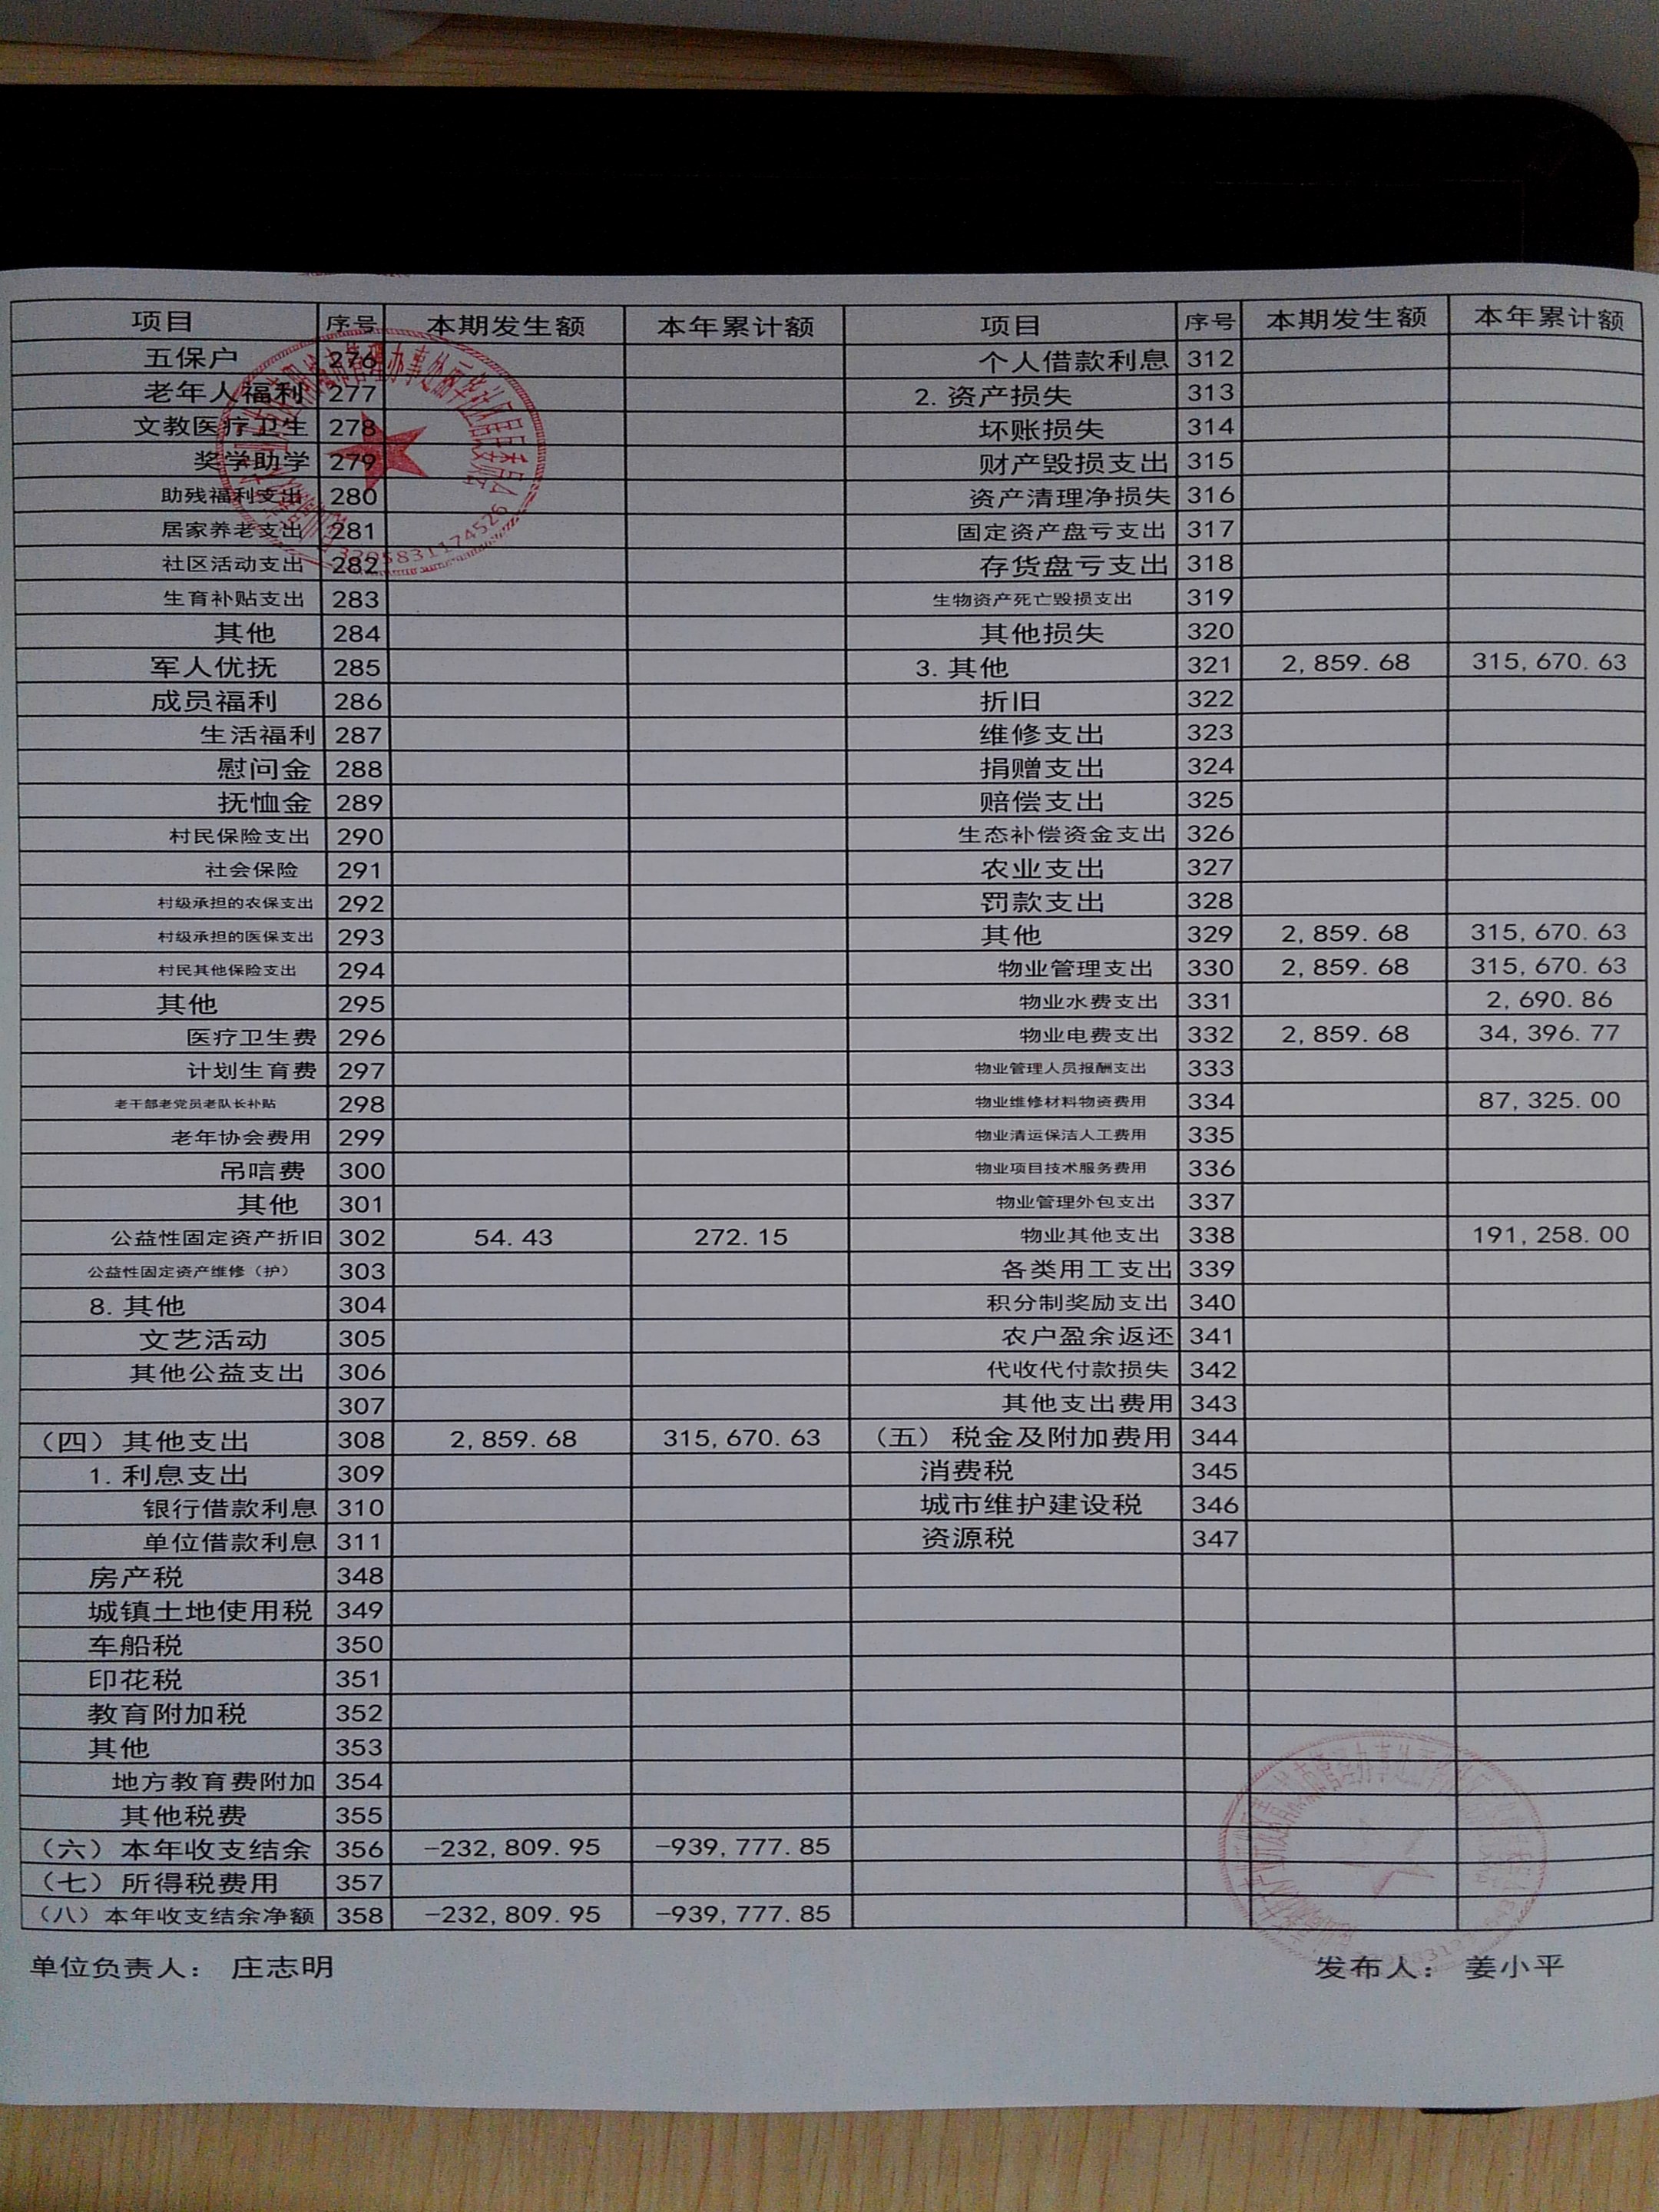 项目 序号 本期发生额 本年累计额 项目 序号 本期发生额 本年累计额
五保户 276 个人借款利息 312
老年人福利 277 2. 资产损失 313
文教医疗卫生 278 坏账损失 314
奖学助学 279 财产毁损支出 315
助残福利支出 280 资产清理净损失 316
居家养老支出 281 固定资产盘亏支出 317
社区活动支出 282 存货盘亏支出 318
生育补贴支出 283 生物资产死亡毁损支出 319
其他 284 其他损失 320
军人优抚 285 3. 其他 321 2,859.68 315,670.63
成员福利 286 折旧 322
生活福利 287 维修支出 323
慰问金 288 捐赠支出 324
抚恤金 289 赔偿支出 325
村民保险支出 290 生态补偿资金支出 326
社会保险 291 农业支出 327
村级承担的农保支出 292 罚款支出 328
村级承担的医保支出 293 其他 329 2,859.68 315,670.63
村民其他保险支出 294 物业管理支出 330 2,859.68 315,670.63
其他 295 物业水费支出 331 2,690.86
医疗卫生费 296 物业电费支出 332 2,859.68 34,396.77
计划生育费 297 物业管理人员报酬支出 333
老干部老党员老队长补贴 298 物业维修材料物资费用 334 87,325.00
老年协会费用 299 物业清运保洁人工费用 335
吊唁费 300 物业项目技术服务费用 336
其他 301 物业管理外包支出 337
公益性固定资产折旧 302 54.43 272.15 物业其他支出 338 191,258.00
公益性固定资产维修（护） 303 各类用工支出 339
8. 其他 304 积分制奖励支出 340
文艺活动 305 农户盈余返还 341
其他公益支出 306 代收代付款损失 342
307 其他支出费用 343
（四）其他支出 308 2,859.68 315,670.63 （五）税金及附加费用 344
1. 利息支出 309 消费税 345
银行借款利息 310 城市维护建设税 346
单位借款利息 311 资源税 347
房产税 348
城镇土地使用税 349
车船税 350
印花税 351
教育附加税 352
其他 353
地方教育费附加 354
其他税费 355
（六）本年收支结余 356 -232,809.95 -939,777.85
（七）所得税费用 357
（八）本年收支结余净额 358 -232,809.95 -939,777.85
单位负责人： 庄志明 发布人： 姜小平
3205831174526